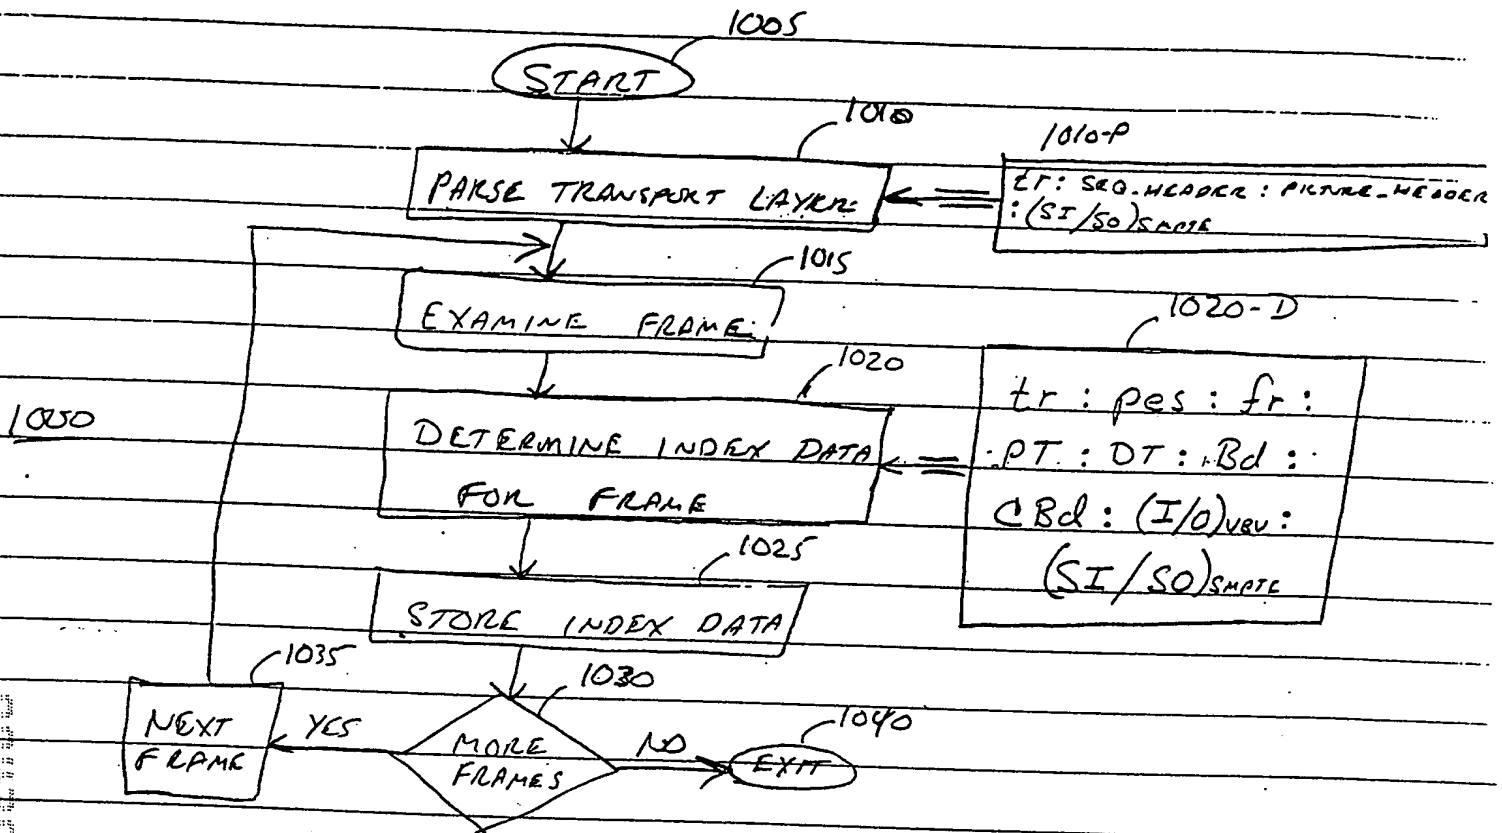 1005
START
1010
1010-P
PARSE TRANSPORT LAYER
tr: SEQ-HEADER: PICTURE_HEADER
:(SI/SO)SMPTE
1015
EXAMINE FRAME
1020-D
1020
tr : pes : fr :
1000
DETERMINE INDEX DATA
FOR FRAME
: PT : DT : Bd :
CBd : (I/O)VBV :
(SI/SO)SMPTE
1025
STORE INDEX DATA
1035
1030
NEXT
FRAME
YES
MORE
FRAMES
NO
1040
EXIT